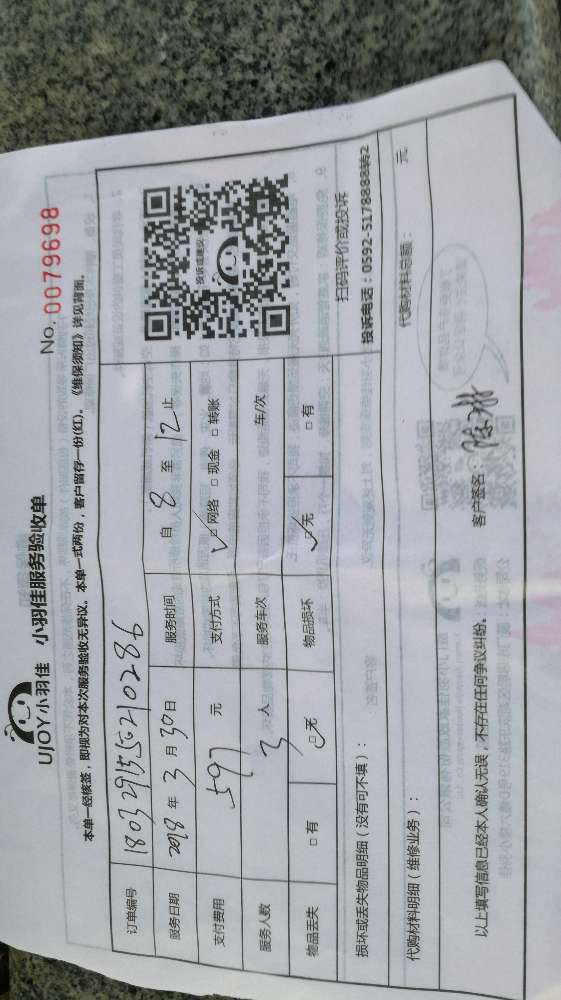 UJOY小羽佳 小羽佳服务验收单
No. 0079698
本单一经核签，即视为对本次服务验收无异议，本单一式两份，客户留存一份(红)。《维保须知》详见背面。
订单编号 18032915550210286
服务日期 2018 年 3 月 30 日 服务时间 自 8 至 12 止
支付费用 597 元 支付方式 ☑网络 □现金 □转账
服务人数 3 人 服务车次 车/次
物品丢失 □有 ☑无 物品损坏 ☑无 □有
投诉或建议
扫码评价或投诉
投诉电话：0592-5178888转2
损坏或丢失物品明细（没有可不填）：
代购材料明细（维修业务）： 代购材料总额： 元
以上填写信息已经本人确认无误，不存在任何争议纠纷。 客户签名：